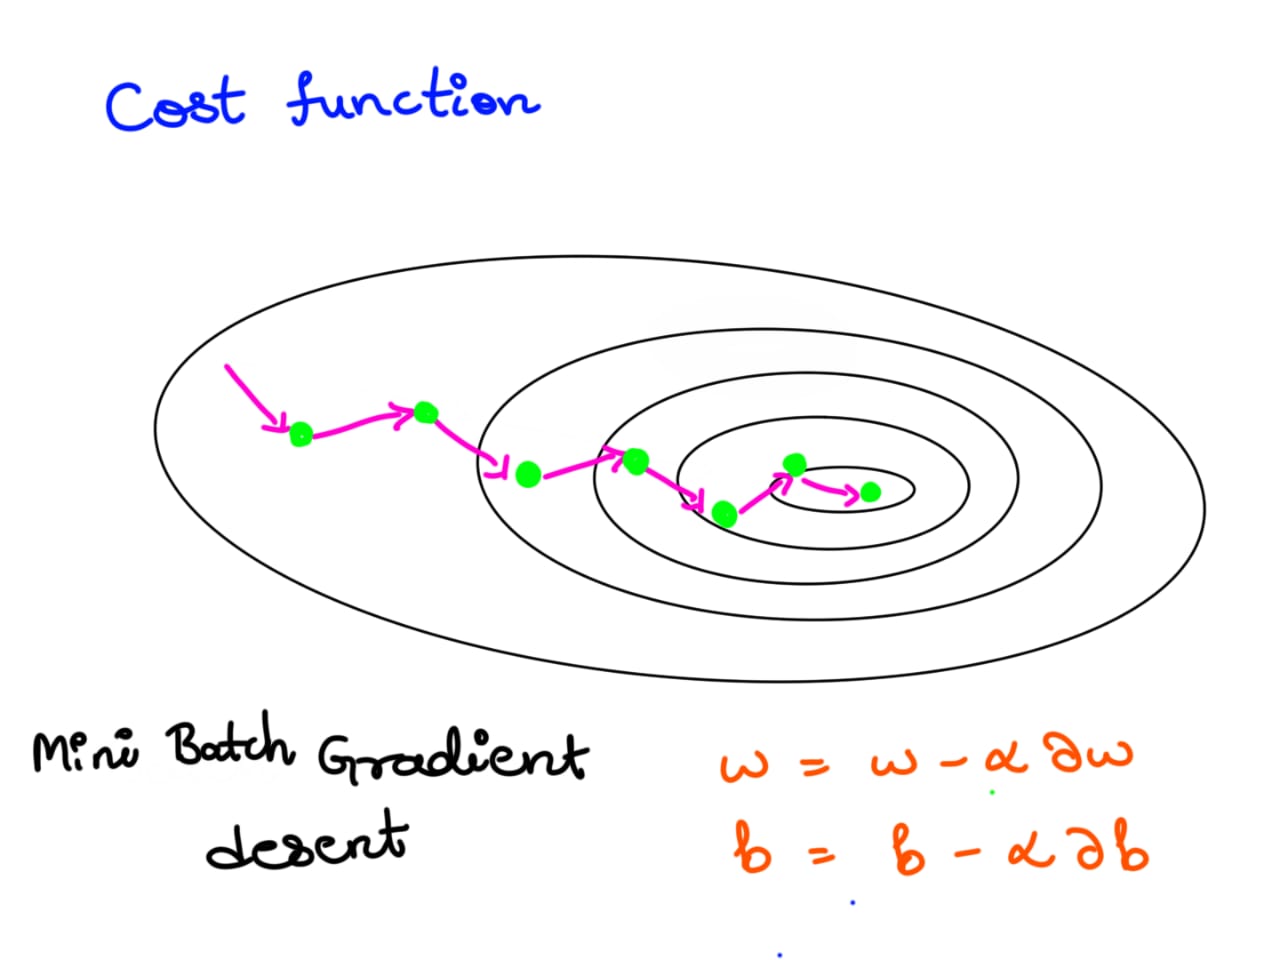 Cost function
Mini Batch Gradient
desent
w = w - α ∂w
b = b - α ∂b